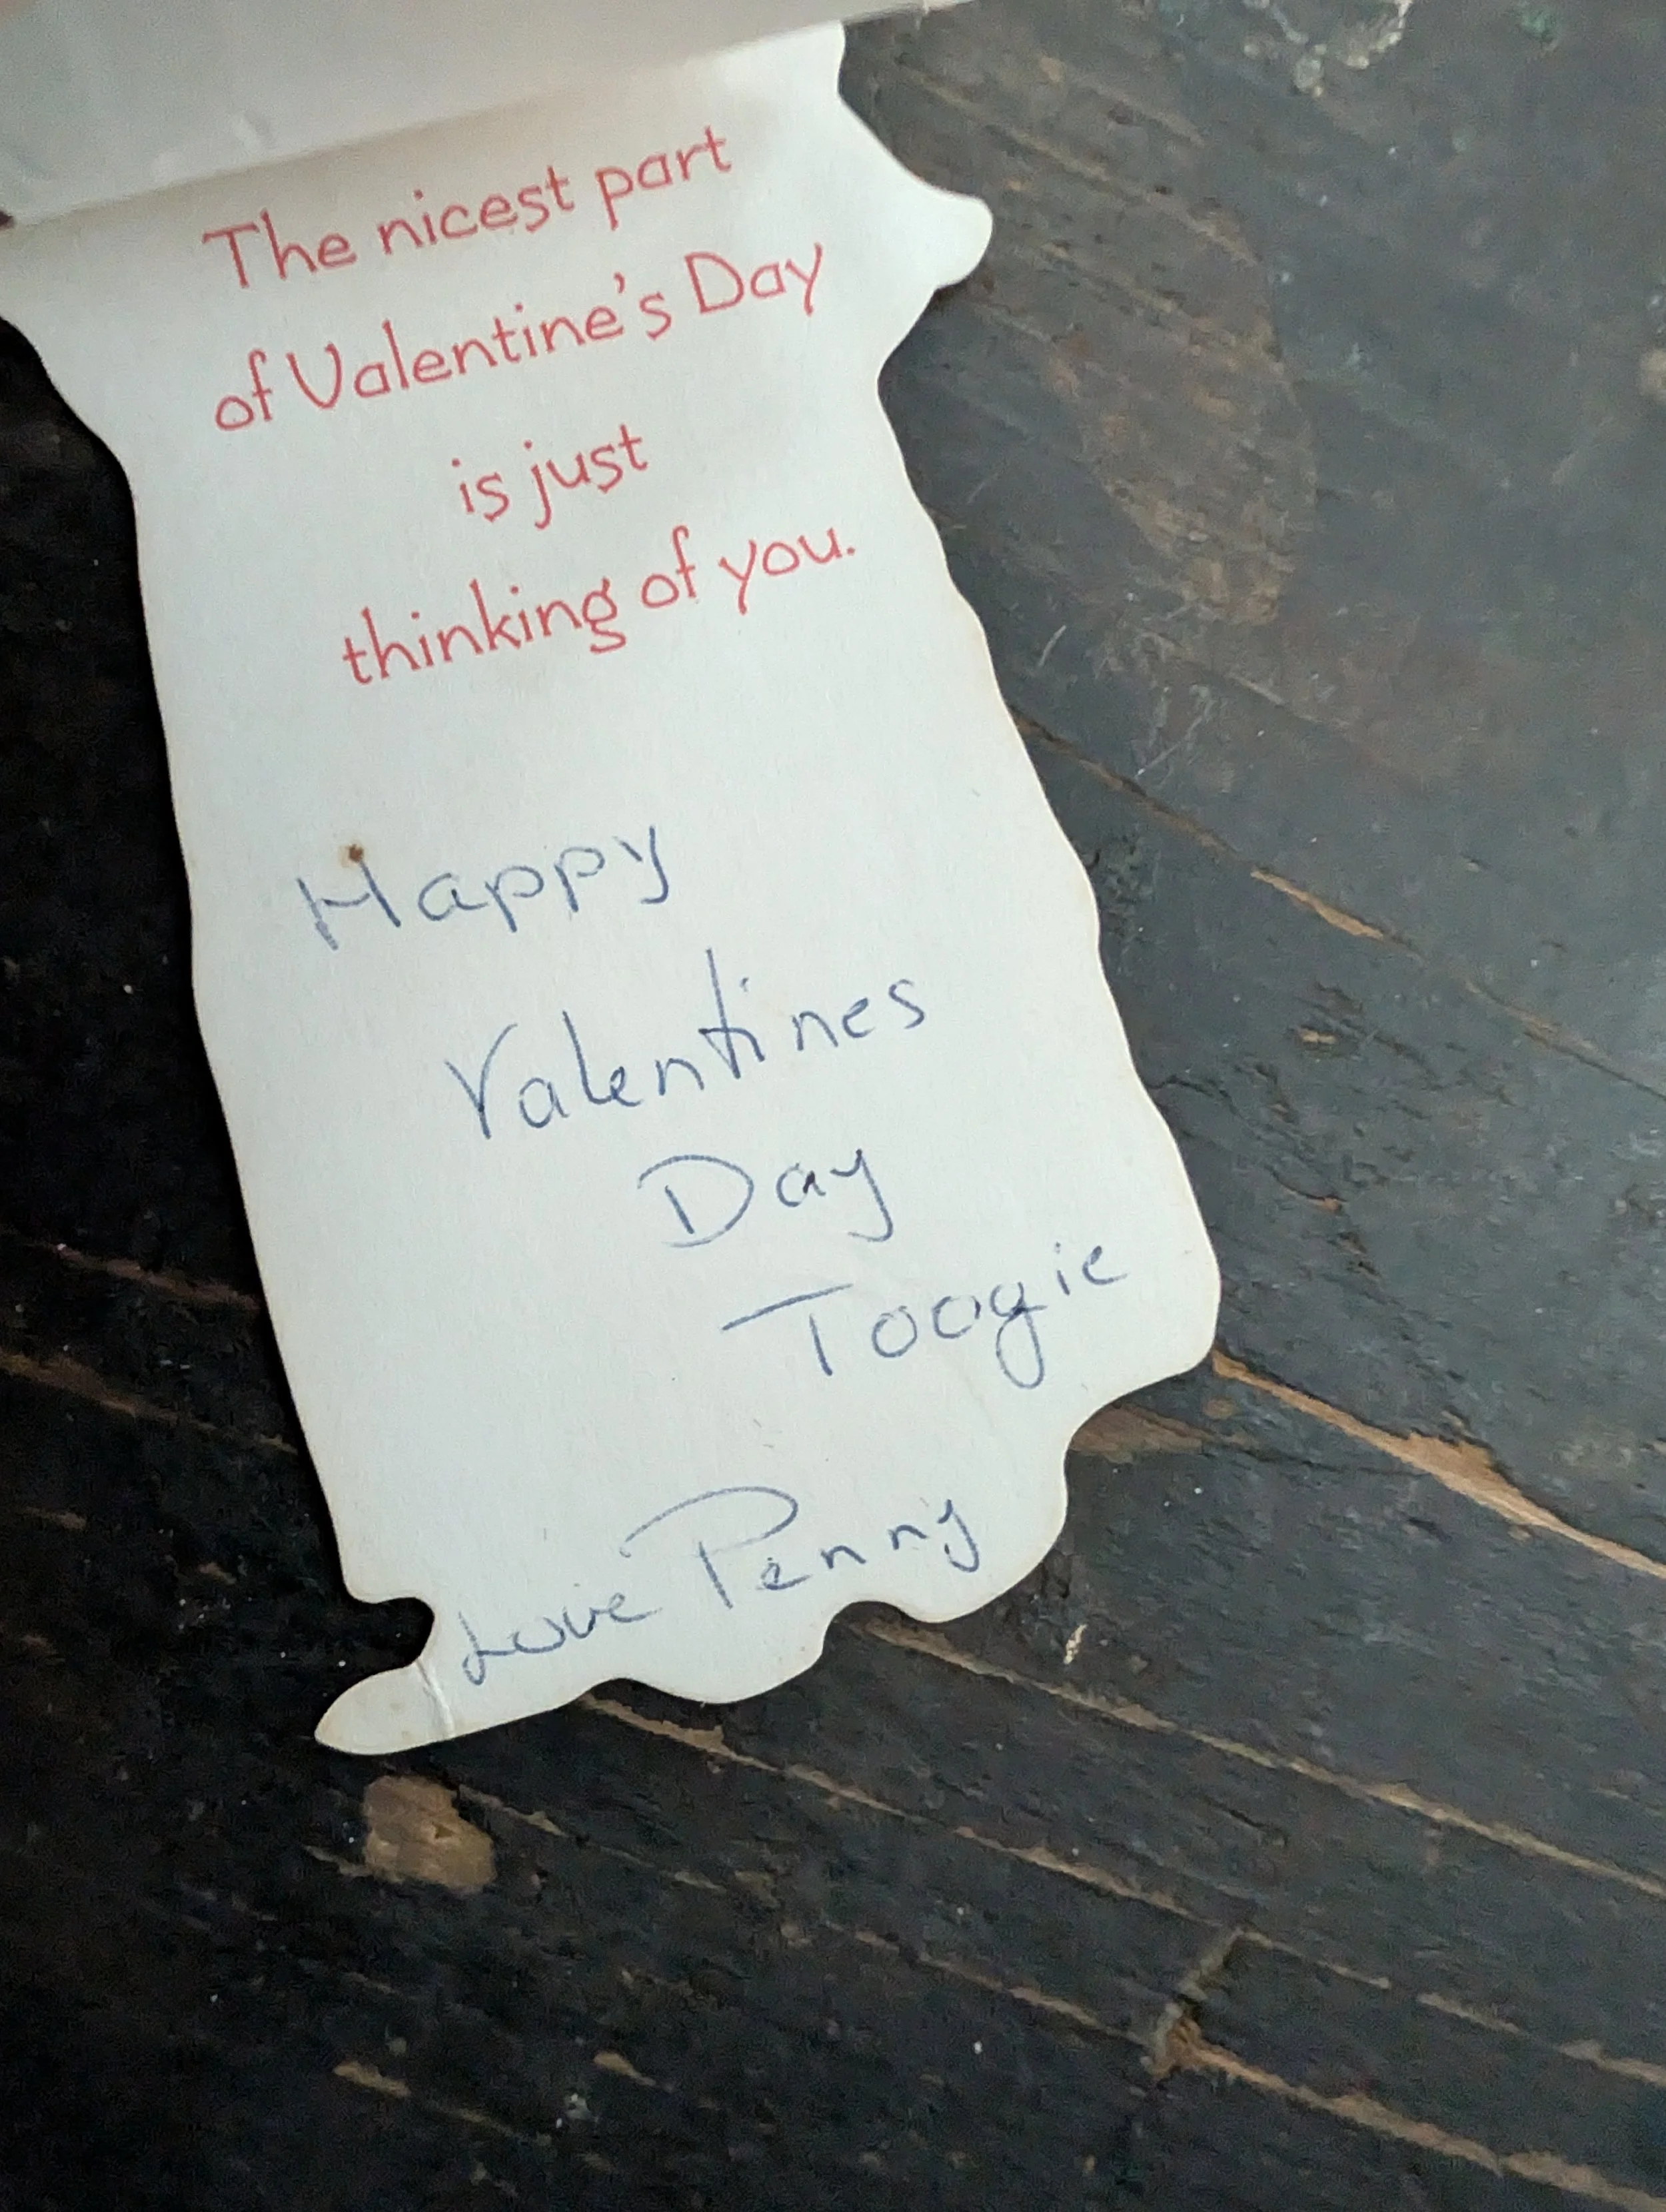 The nicest part
of Valentine's Day
is just
thinking of you.
Happy
Valentines
Day
Toogie
Love Penny